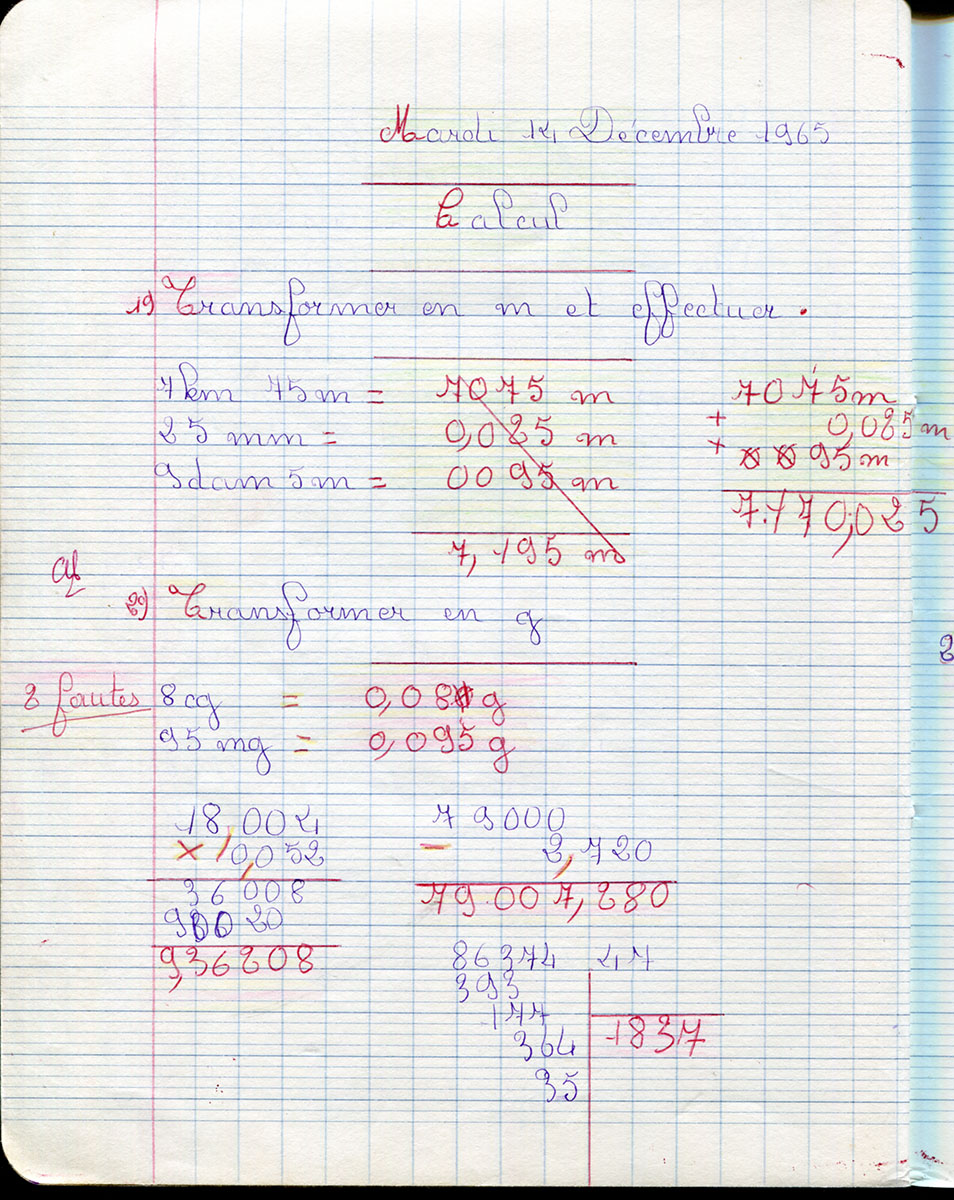 Mardi 14 Décembre 1965
Calcul
1º) Transformer en m et effectuer.
7km 75m = 7075 m
25 mm = 0,025 m
9dam 5m = 0095 m
7,195 m
7075m
+ 0,025m
+ 95m
7.170,025
2º) Transformer en g
2 fautes
8cg = 0,08 g
95 mg = 0,095 g
18,004
× 0,052
36008
90020
9,36208
79000
- 2,720
79.007,280
86374 47
393
177 1837
364
35